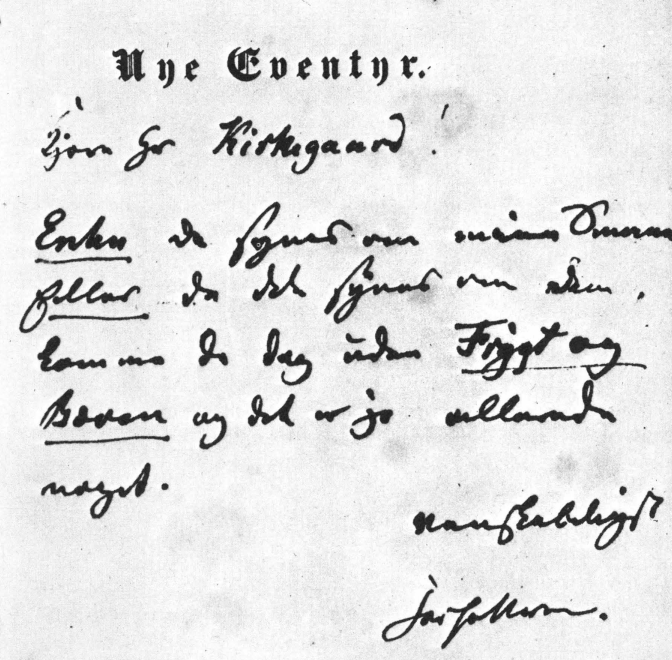 Nye Eventyr.
Kjere Hr Kirkegaard !
Enten De synes om mine Smaae
Eller De ikke synes om dem,
komme de dog uden Frygt og
Bæven og det er jo allerede
noget.
venskabeligst
Forfatteren.